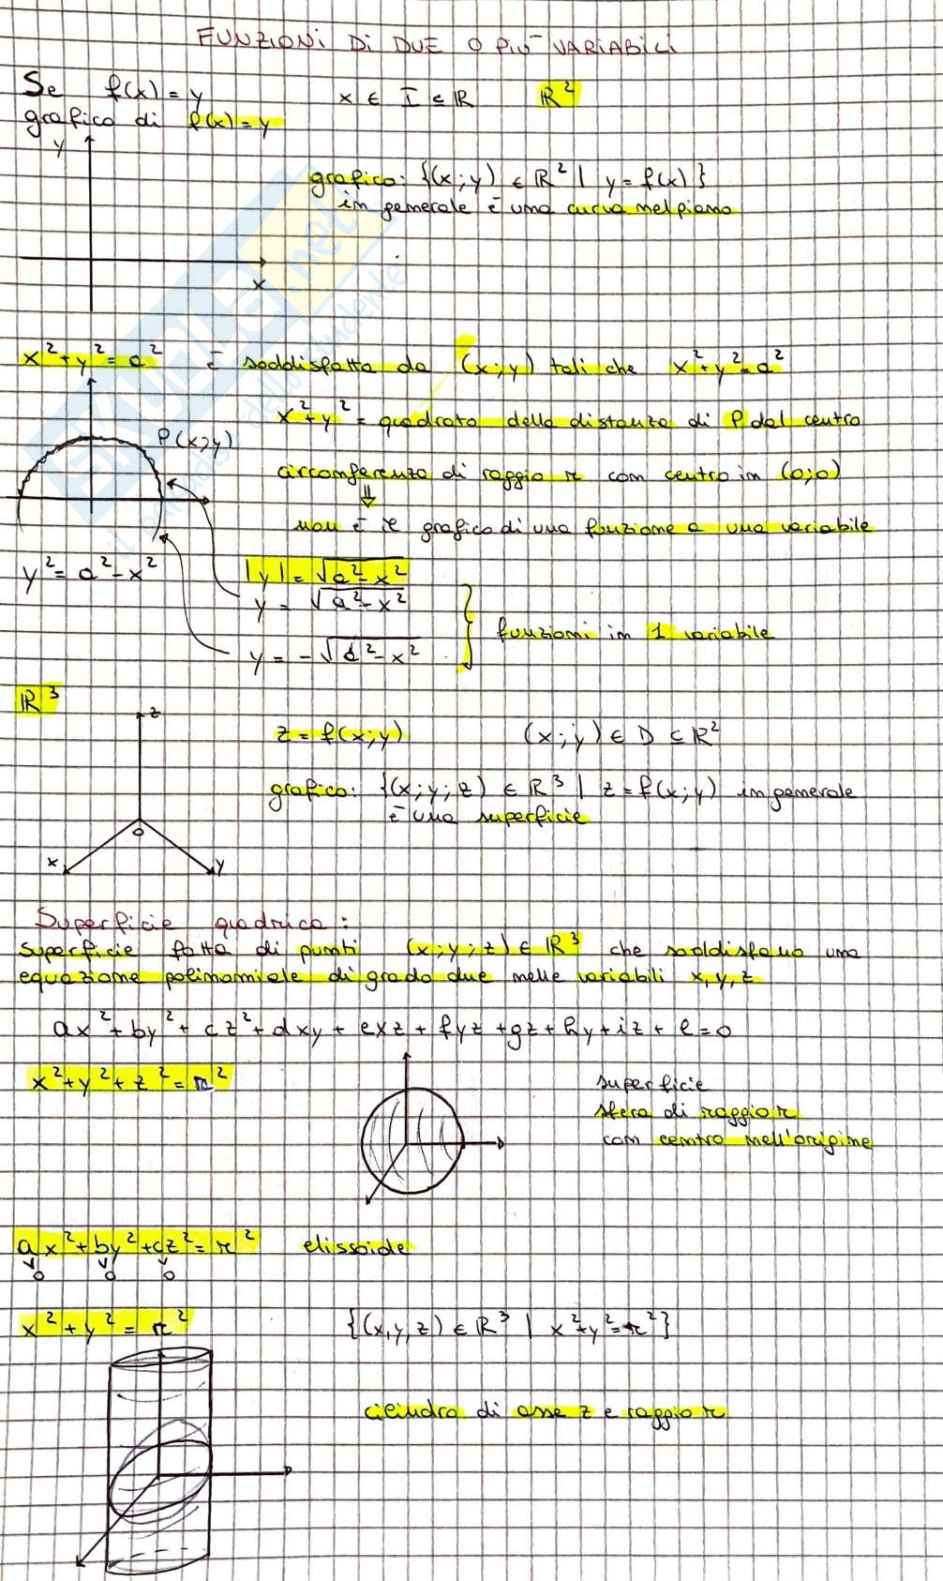 FUNZIONI DI DUE O PIÙ VARIABILI
Se f(x) = y x ∈ I ⊆ ℝ ℝ²
grafico di f(x) = y
y
grafico: {(x;y) ∈ ℝ² | y = f(x)}
in generale è una curva nel piano
x
x² + y² = a² è soddisfatta da (x;y) tali che x² + y² = a²
x² + y² = quadrato della distanza di P dal centro
P(x;y)
circonferenza di raggio r con centro in (0;0)
⇓
non è il grafico di una funzione a una variabile
y² = a² - x² |y| = √a² - x²
y = √a² - x²
funzioni in 1 variabile
y = -√a² - x²
ℝ³
z
z = f(x;y) (x;y) ∈ D ⊆ ℝ²
grafico: {(x;y;z) ∈ ℝ³ | z = f(x;y) in generale
è una superficie
0
x y
Superficie quadrica:
superficie fatta di punti (x;y;z) ∈ ℝ³ che soddisfano una
equazione polinomiale di grado due nelle variabili x, y, z
ax² + by² + cz² + dxy + exz + fyz + gz + hy + iz + l = 0
x² + y² + z² = r²
superficie
sfera di raggio r
con centro nell'origine
ax² + by² + cz² = r² elissoide
v v v
0 0 0
x² + y² = r² {(x,y,z) ∈ ℝ³ | x² + y² = r²}
cilindro di asse z e raggio r